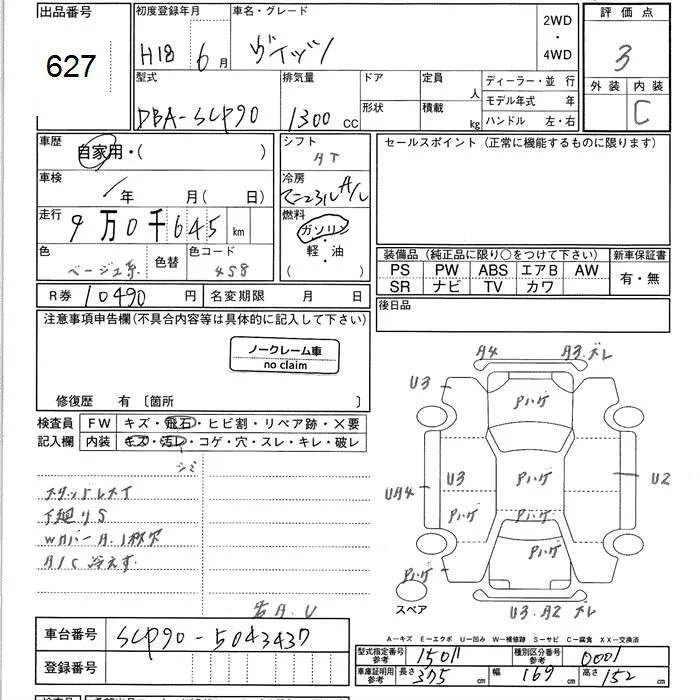 出品番号
627
初度登録年月
H18 6月
車名・グレード
ヴィッツ
2WD
・
4WD
評価点
3
外装 内装
C
型式
DBA-SCP90
排気量
1300 CC
ドア
形状
定員
人
積載
kg
ディーラー・並 行
モデル年式 年
ハンドル 左・右
車歴
自家用・( )
シフト
AT
車検
/年 月( 日)
冷房
マニュアル A/C
走行
9万0千645km
燃料
ガソリン
・
軽・油
( )
色
ベージュ系
色替
色コード
4S8
R券 10490円
名変期限 月 日
セールスポイント(正常に機能するものに限ります)
装備品(純正品に限り○をつけて下さい)
新車保証書
PS PW ABS エアB AW
SR ナビ TV カワ
有・無
後日品
注意事項申告欄(不具合内容等は具体的に記入して下さい)
ノークレーム車
no claim
修復歴 有〔箇所 〕
検査員
記入欄
FW キズ・飛石・ヒビ割・リペア跡・×要
内装 キズ・汚レ・コゲ・穴・スレ・キレ・破レ
シミ
下廻りS
A/C 冷えず
A4 A3.ズレ
U3 Pハゲ
UA4 U3 Pハゲ U2
Pハゲ Pハゲ
Pハゲ
Pハゲ
スペア
U3.A2 ズレ
A―キズ E―エクボ U―凹み W―補修跡 S―サビ C―腐食 XX―交換済
車台番号 SCP90-5043437
登録番号
型式指定番号
参考
15011
種別区分番号
参考
0001
車庫証明用
参考
長さ 375 cm 幅 169 cm 高さ 152 cm